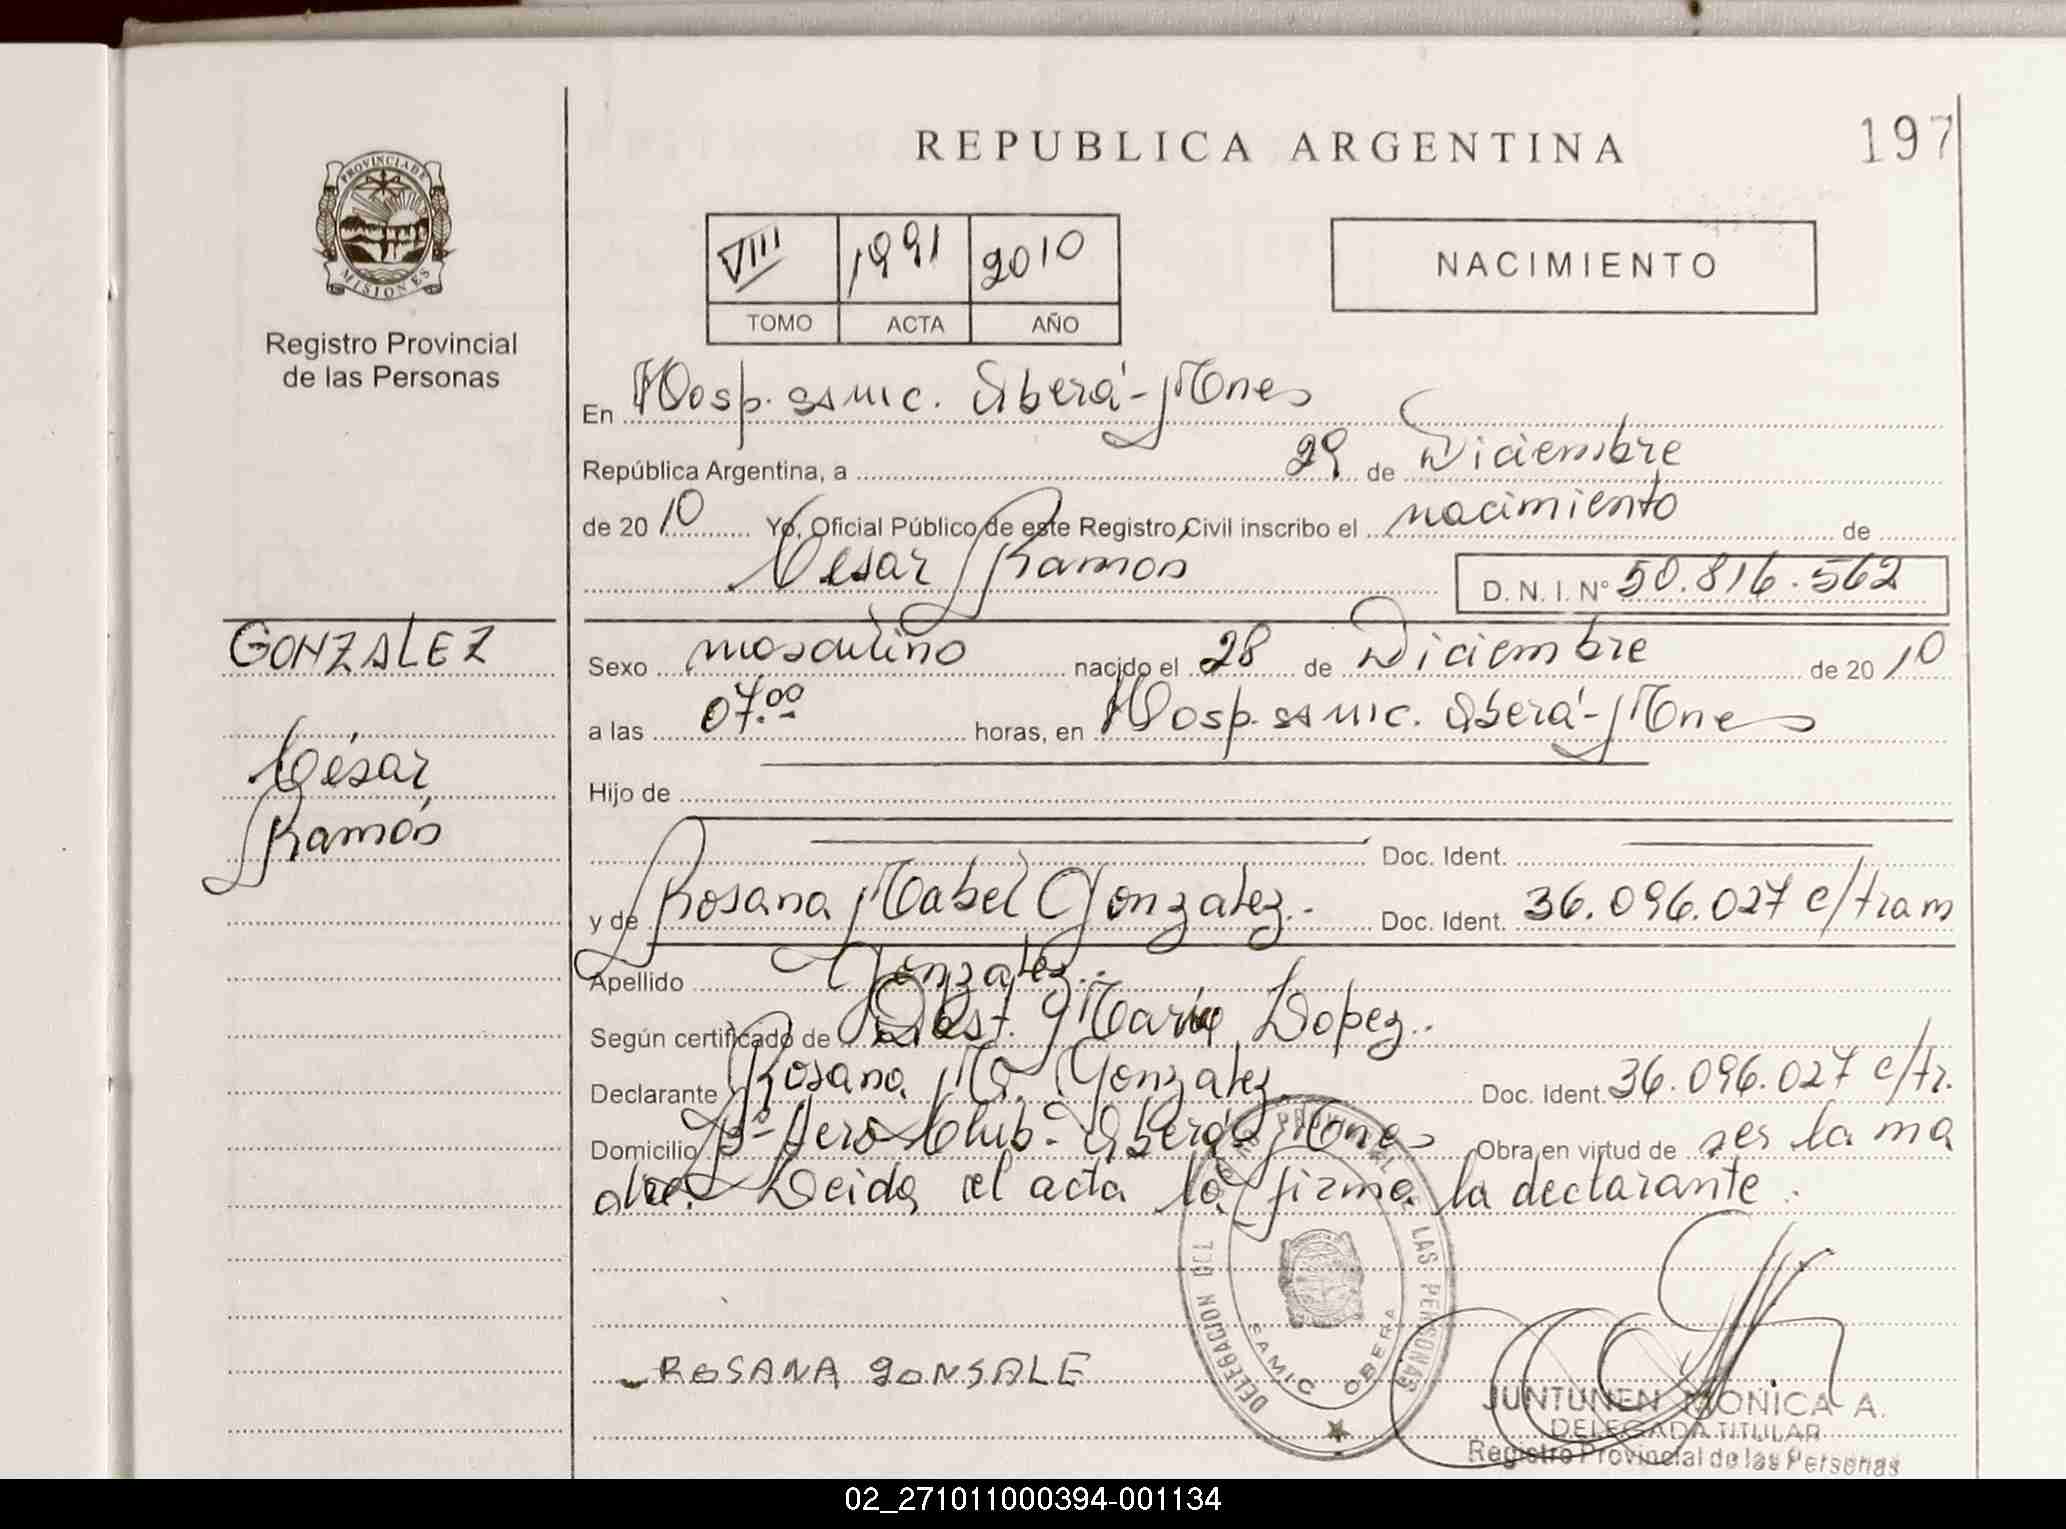 REPUBLICA ARGENTINA
197
PROVINCIA DE
MISIONES
Registro Provincial
de las Personas
VIII 1991 2010
TOMO ACTA AÑO
NACIMIENTO
En Hosp. samic. Oberá - Mnes
República Argentina, a 29 de Diciembre
de 2010 Yo, Oficial Público de este Registro Civil inscribo el nacimiento de
César Ramón
D. N. I. N° 50.816.562
GONZALEZ
César
Ramón
Sexo masculino nacido el 28 de Diciembre de 2010
a las 07.00 horas, en Hosp. samic. Oberá - Mnes
Hijo de
Doc. Ident.
y de Rosana Mabel Gonzalez.- Doc. Ident. 36.096.027 c/tram
Apellido Gonzalez.-
Según certificado de Obst. María Lopez..
Declarante Rosana M. Gonzalez. Doc. Ident. 36.096.027 c/tr.
Domicilio Bº Aero Club - Oberá Mnes Obra en virtud de ser la ma
dre. Leida el acta la firma la declarante.
DELEGACION REGISTRO PROVINCIAL DE LAS PERSONAS
SAMIC OBERA
ROSANA GONSALE
JUNTUNEN MONICA A.
DELEGADA TITULAR
Registro Provincial de las Personas
02_271011000394-001134